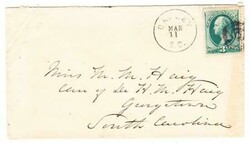 MAR
11
Miss M. M. Haig
Care of Dr H. M. Haig
Georgetown
South Carolina